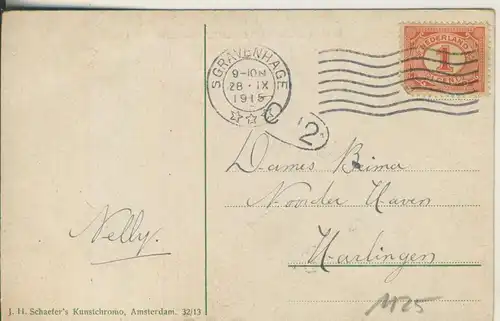 'S GRAVENHAGE
9-10N
28.IX
1915
NEDERLAND
1
CENT
2
Dames Brima
Noorder Haven
Harlingen
Nelly.
J. H. Schaefer's Kunstchromo, Amsterdam. 32/13
1125